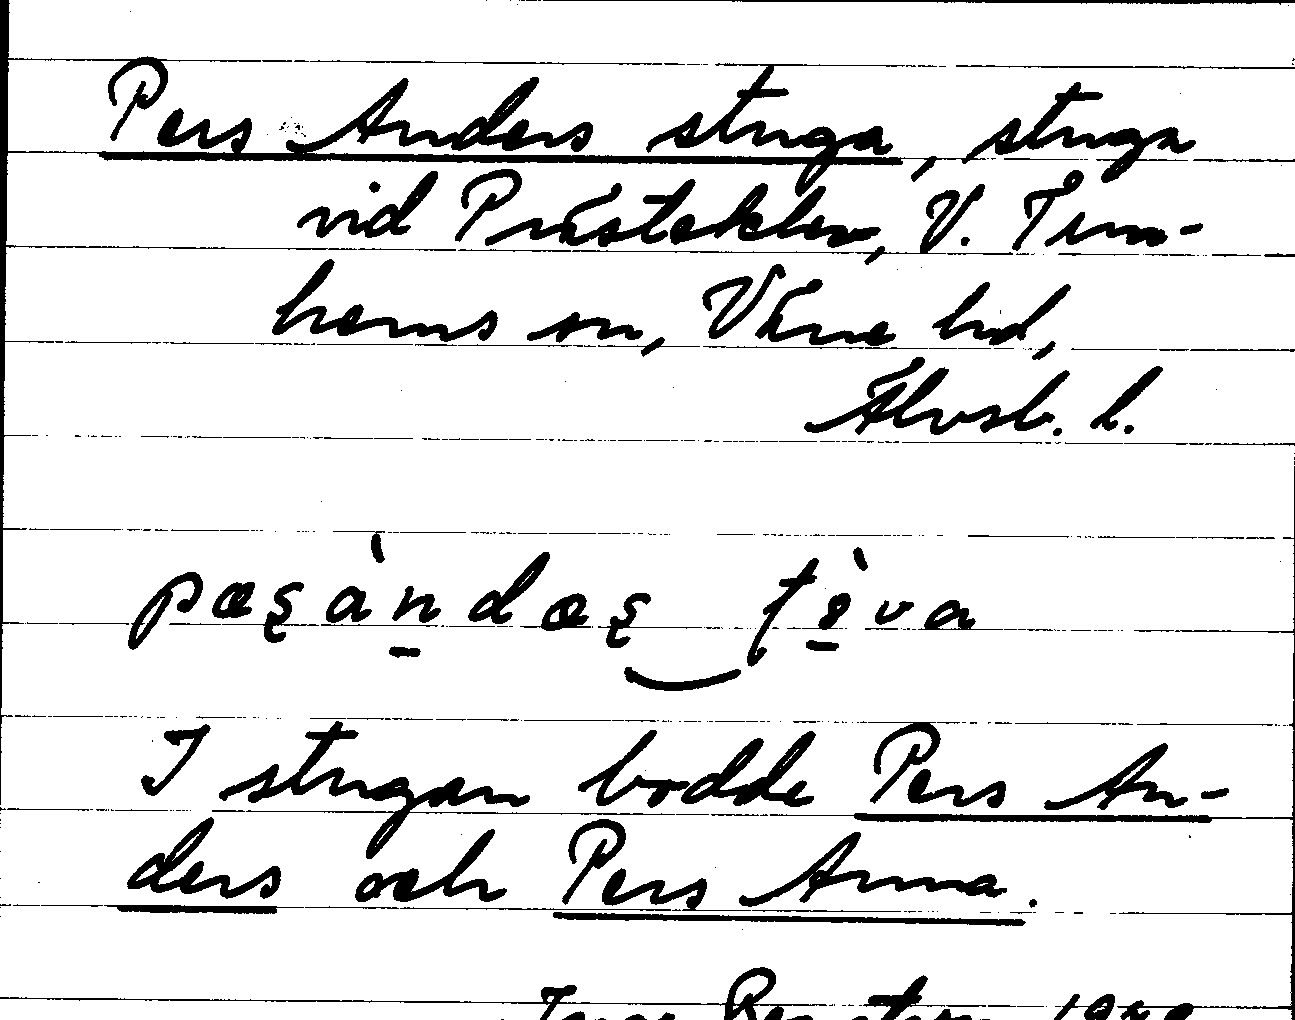 Pers Anders stuga, stuga
vid Prästeklev, V. Tun-
hems sn, Väne hd,
Älvsb. l.
I stugan bodde Pers An-
ders och Pers Anna.